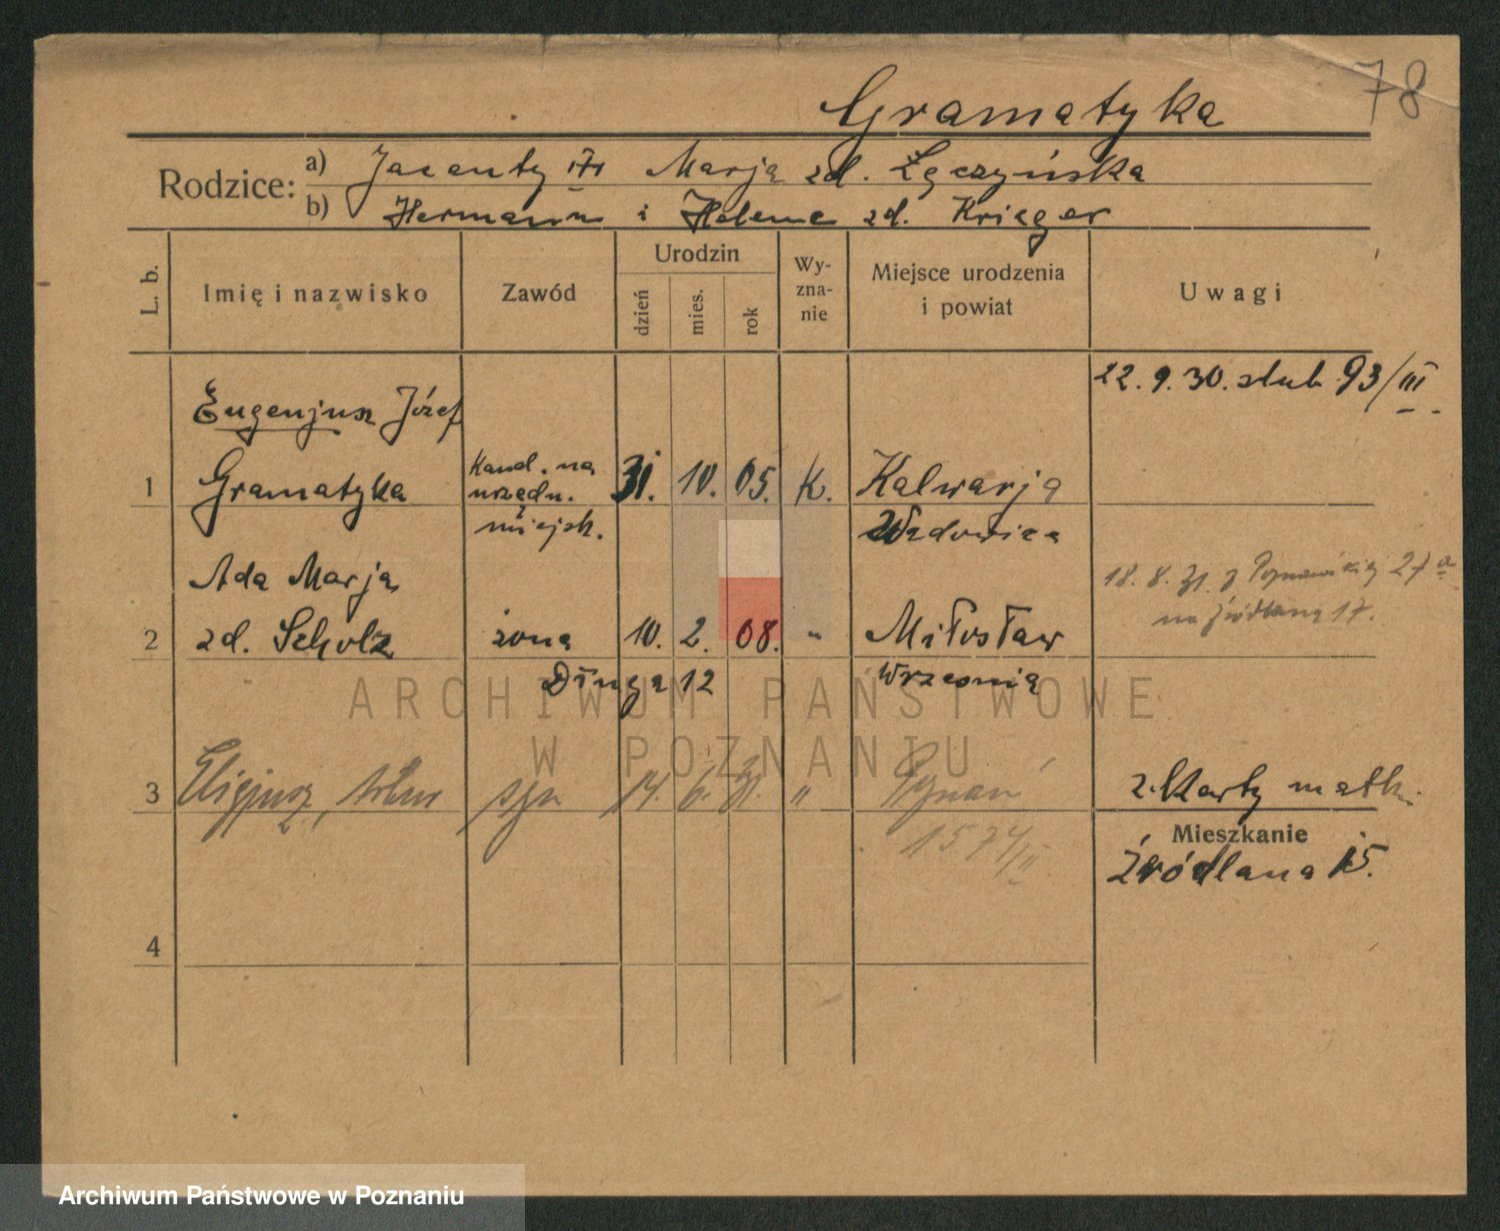 78
Gramatyka
Rodzice:
a) Jacenty i Marja zd. Łęczyńska
b) Hermann i Helene zd. Krieger
L. b.
Imię i nazwisko
Zawód
Urodzin
dzień
mies.
rok
Wy-
zna-
nie
Miejsce urodzenia
i powiat
Uwagi
22. 9. 30. slub. 93/III
Eugenjusz Józef
1 Gramatyka
Kand. na
urzędn.
miejsk.
31. 10. 05. K. Kalwarja
Wadowice
Ada Marja
2 zd. Scholz żona 10. 2. 08. " Miłosław
Września
Długa 12
18. 8. 31. z Poznańskiej 27a
na Źródlaną 17.
3 Eligjusz, syn 14. 6. 31. " Poznań
1574/II
z. Karty matki
Mieszkanie
Źródlana 15.
4
ARCHIWUM PAŃSTWOWE
W POZNANIU
Archiwum Państwowe w Poznaniu